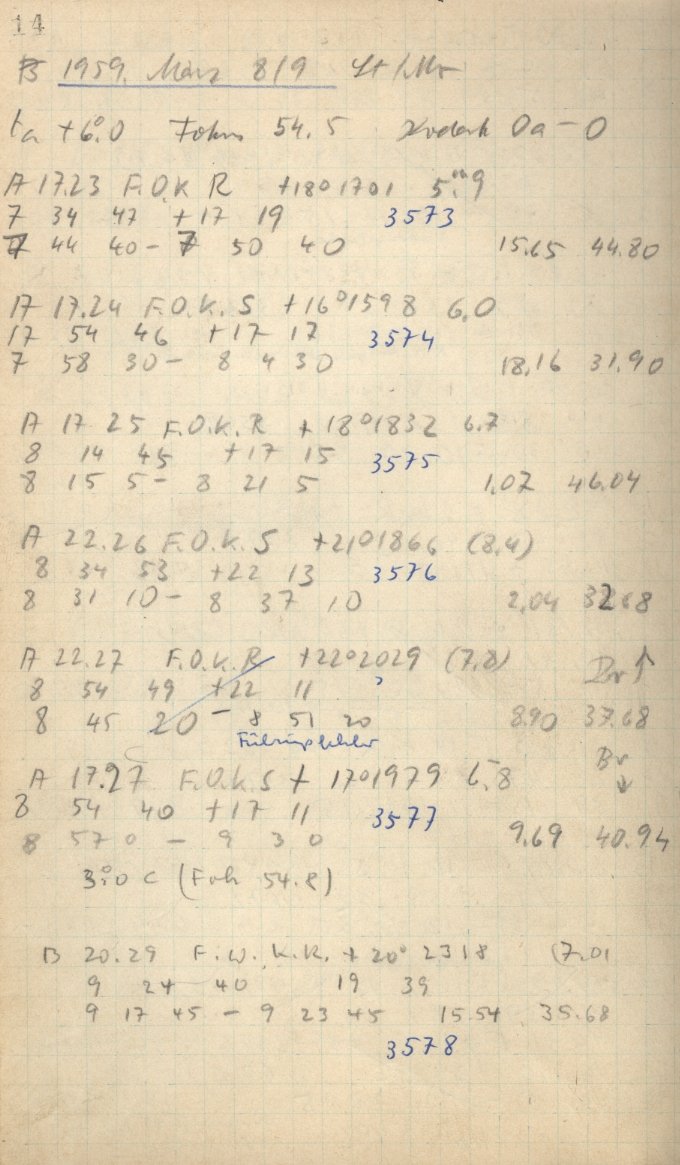 14
B 1959. März 8/9 St/Mr
ta +6°.0 Fokus 54.5 Kodak Oa-O
A 17.23 F.O.K R +18°1701 5.m9
7 34 47 +17 19 3573
7 44 40 - 7 50 40 15.65 44.80
17 17.24 F.O.K. S +16°1598 6.0
17 54 46 +17 17 3574
7 58 30 - 8 4 30 18.16 31.90
A 17 25 F.O.K.R +18°1832 6.7
8 14 45 +17 15 3575
8 15 5 - 8 21 5 1.07 46.04
A 22.26 F.O.K. S +21°1866 (8.4)
8 34 53 +22 13 3576
8 31 10 - 8 37 10 2.04 32.68
A 22.27 F.O.K.R +22°2029 (7.8) Br ↑
8 54 49 +22 11 ?
8 45 20 - 8 51 20 8.90 37.68
Führungsfehler Br ↓
A 17.27 F.O.K S + 17°1979 6.8
8 54 40 +17 11 3577
8 57 0 - 9 3 0 9.69 40.94
3°.0 C (Fok 54.8)
B 20.29 F.W.K.R. +20° 2318 (7.0)
9 24 40 19 39
9 17 45 - 9 23 45 15.54 35.68
3578